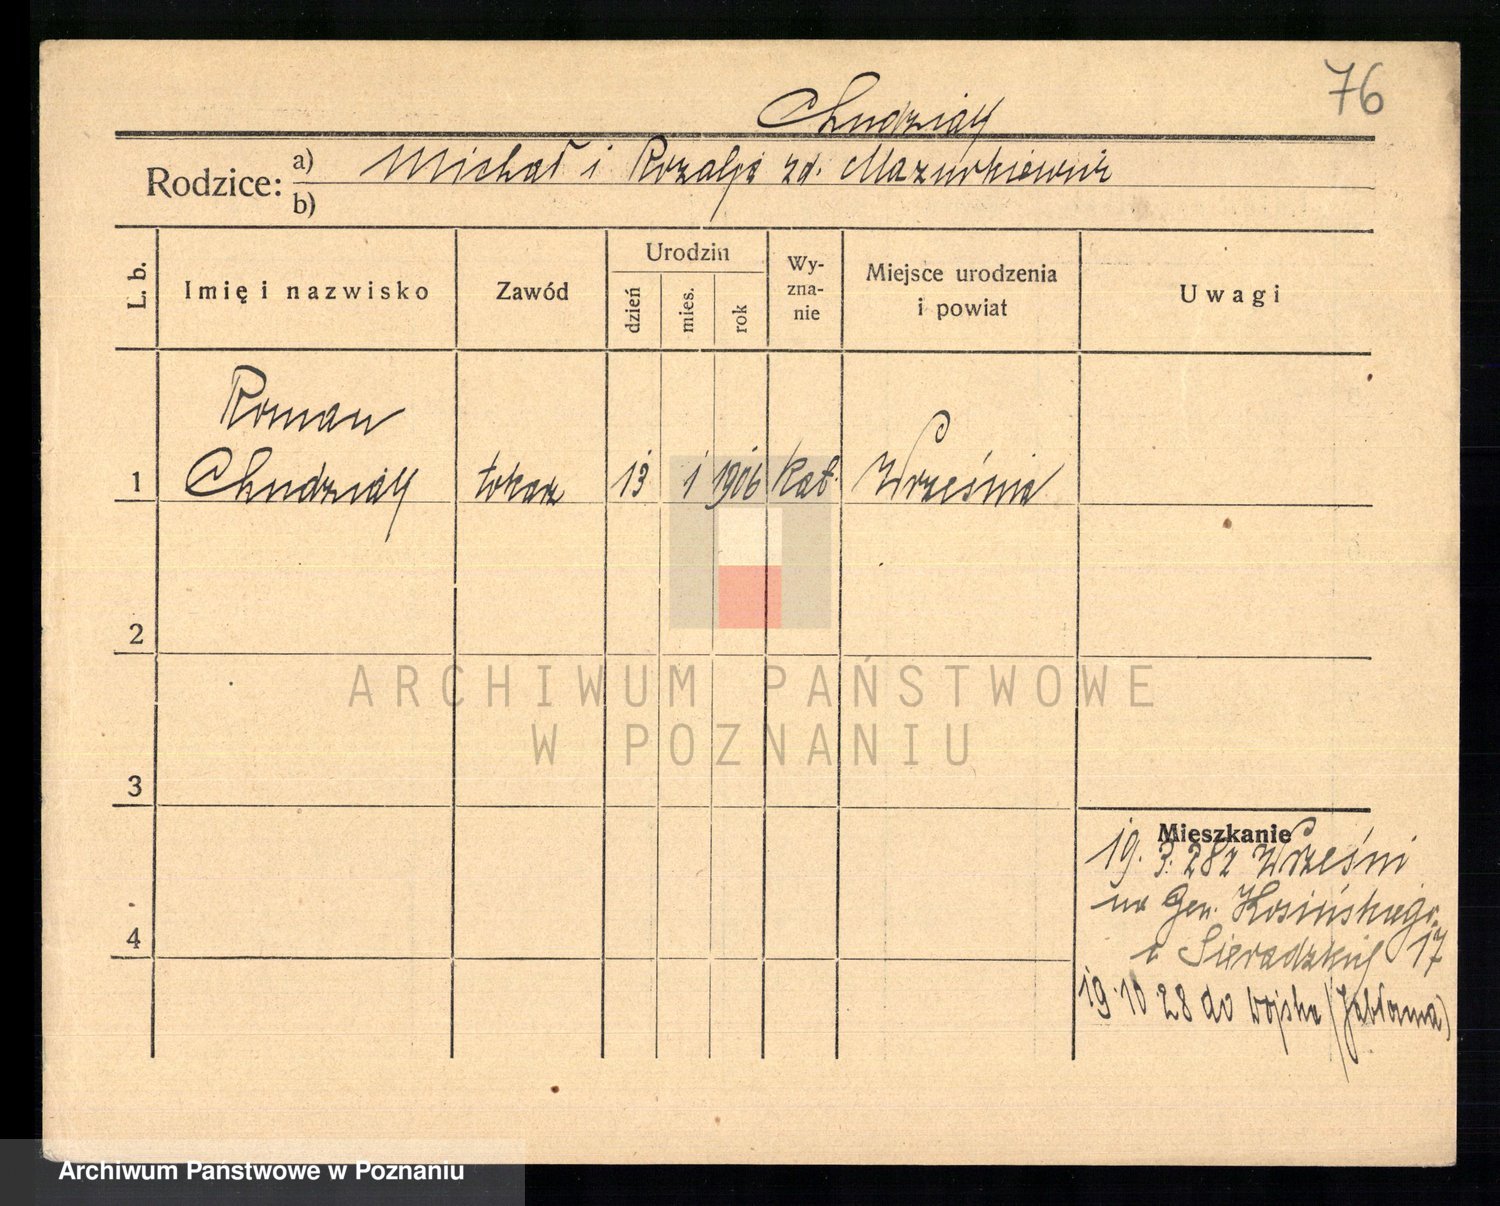 76
Chudziak
Rodzice: a) Michał i Rozalja zd. Mazurkiewicz
b)
L. b.
Imię i nazwisko
Zawód
Urodzin
dzień
mies.
rok
Wy-
zna-
nie
Miejsce urodzenia
i powiat
Uwagi
Roman
1 Chudziak tokarz 13 1 1906 kat. Września
2
ARCHIWUM PAŃSTWOWE
W POZNANIU
3
Mieszkanie
19. 3. 28 z Wrześni
na Gen. Kosińskiego
4
Sieradzkiej 17
19 10 28 do wojska (Jabłonna)
Archiwum Państwowe w Poznaniu